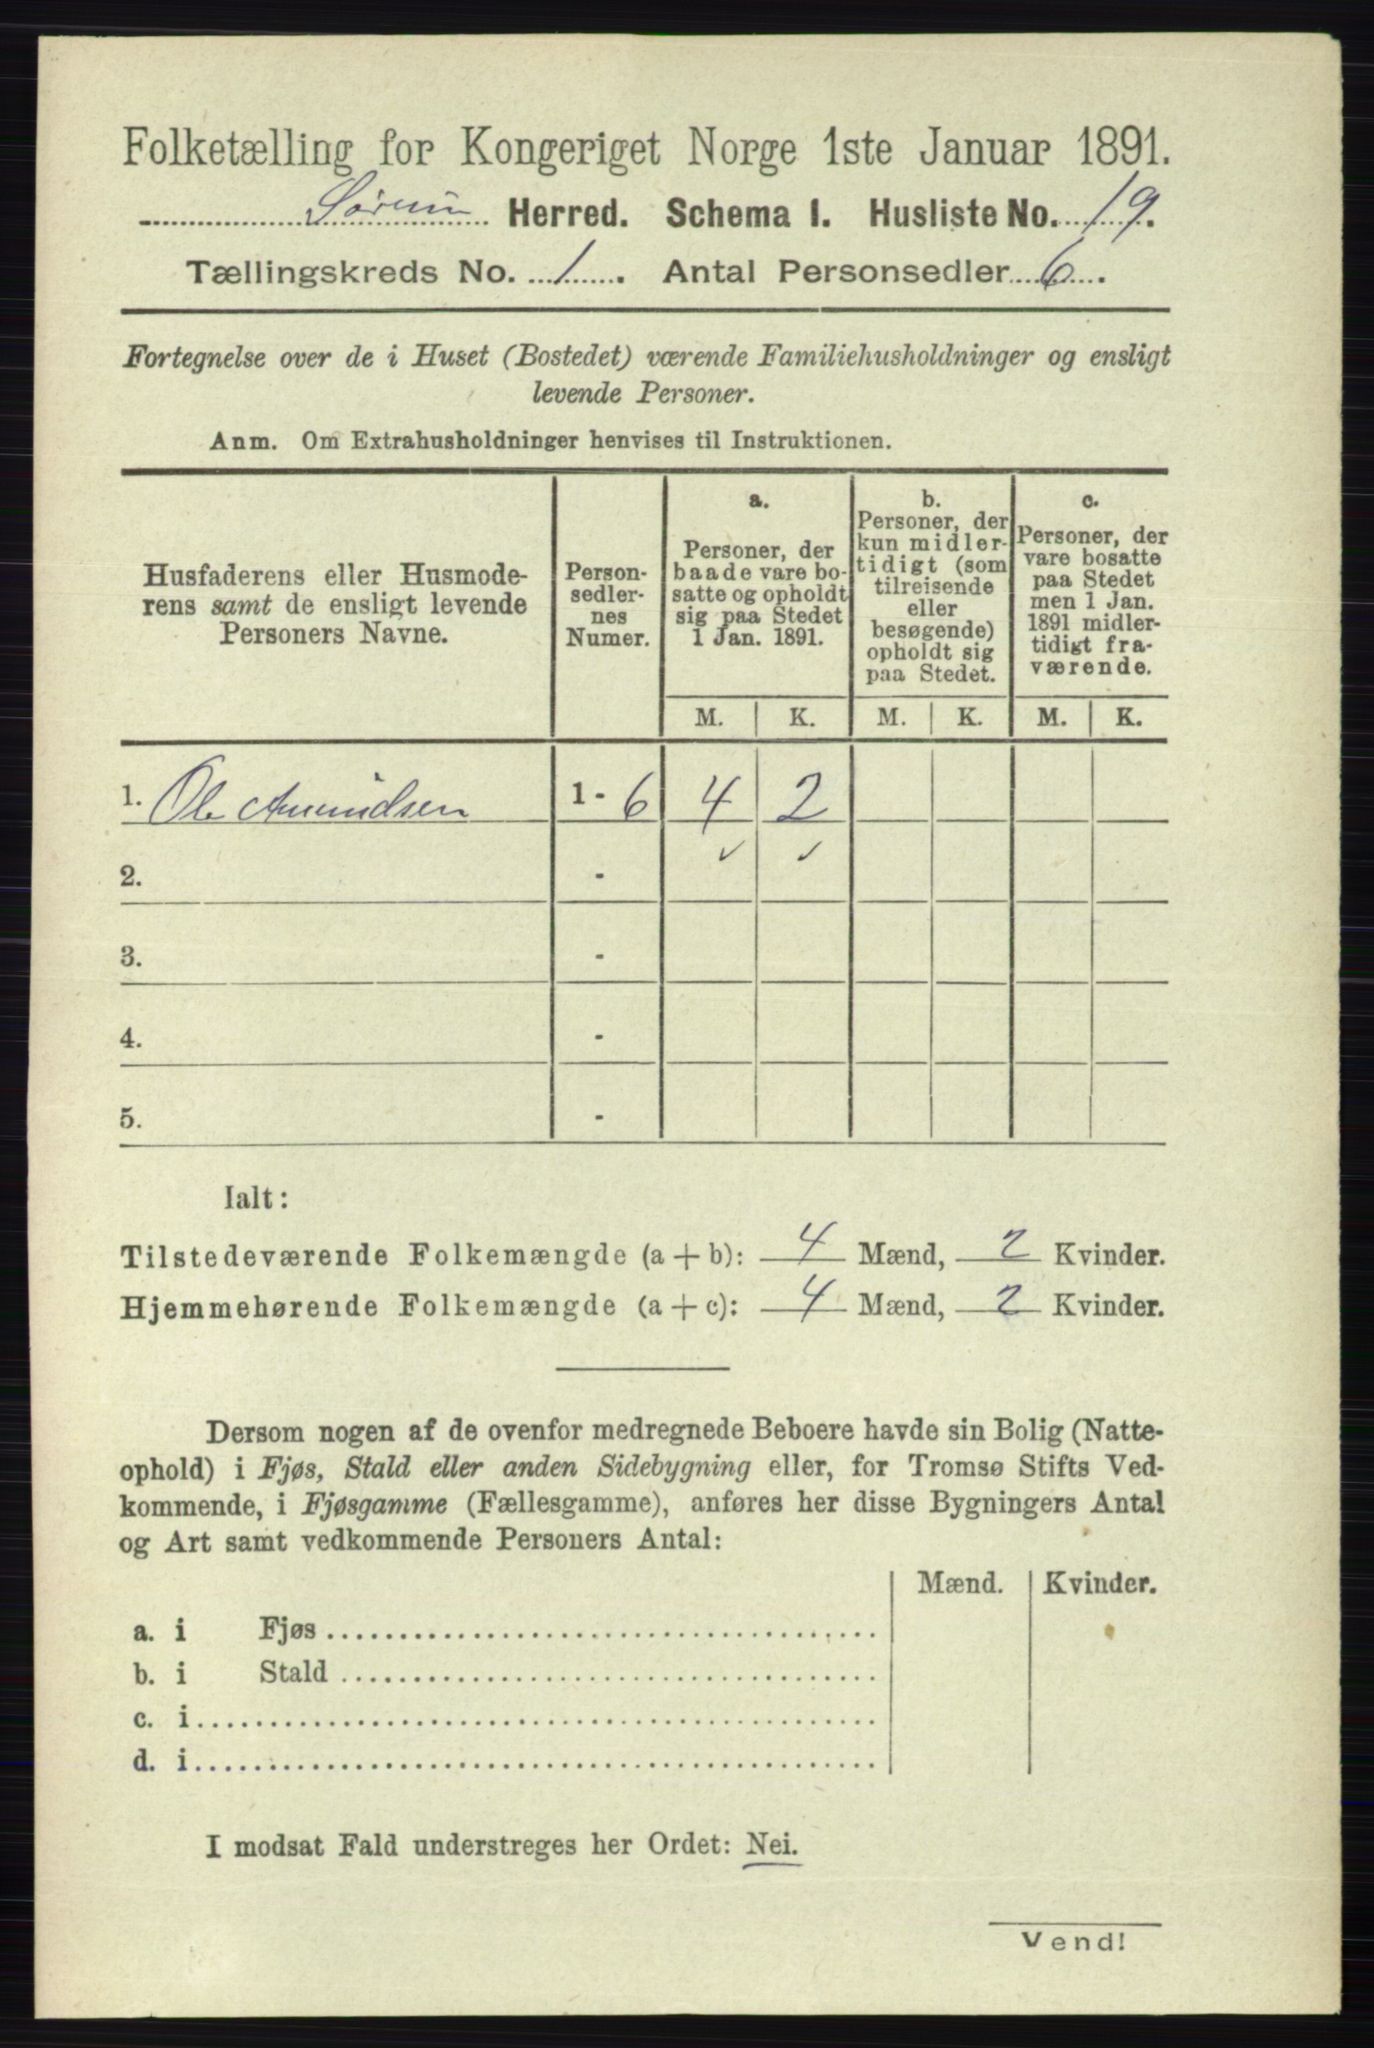 Folketælling for Kongeriget Norge 1ste Januar 1891.
Sørum Herred. Schema I. Husliste No. 19.
Tællingskreds No. 1. Antal Personsedler 6.
Fortegnelse over de i Huset (Bostedet) værende Familiehusholdninger og ensligt
levende Personer.
Anm. Om Extrahusholdninger henvises til Instruktionen.
Husfaderens eller Husmode-
rens samt de ensligt levende
Personers Navne.
Person-
sedler-
nes
Numer.
a.
Personer, der
baade vare bo-
satte og opholdt
sig paa Stedet
1 Jan. 1891.
b.
Personer, der
kun midler-
tidigt (som
tilreisende
eller
besøgende)
opholdt sig
paa Stedet.
c.
Personer, der
vare bosatte
paa Stedet
men 1 Jan.
1891 midler-
tidigt fra-
værende.
M. K. M. K. M. K.
1. Ole Amundsen 1 - 6 4 2
2. -
3. -
4. -
5. -
Ialt:
Tilstedeværende Folkemængde (a + b): 4 Mænd, 2 Kvinder.
Hjemmehørende Folkemængde (a + c): 4 Mænd, 2 Kvinder.
Dersom nogen af de ovenfor medregnede Beboere havde sin Bolig (Natte-
ophold) i Fjøs, Stald eller anden Sidebygning eller, for Tromsø Stifts Ved-
kommende, i Fjøsgamme (Fællesgamme), anføres her disse Bygningers Antal
og Art samt vedkommende Personers Antal:
Mænd. Kvinder.
a. i Fjøs
b. i Stald
c. i
d. i
I modsat Fald understreges her Ordet: Nei.
Vend!